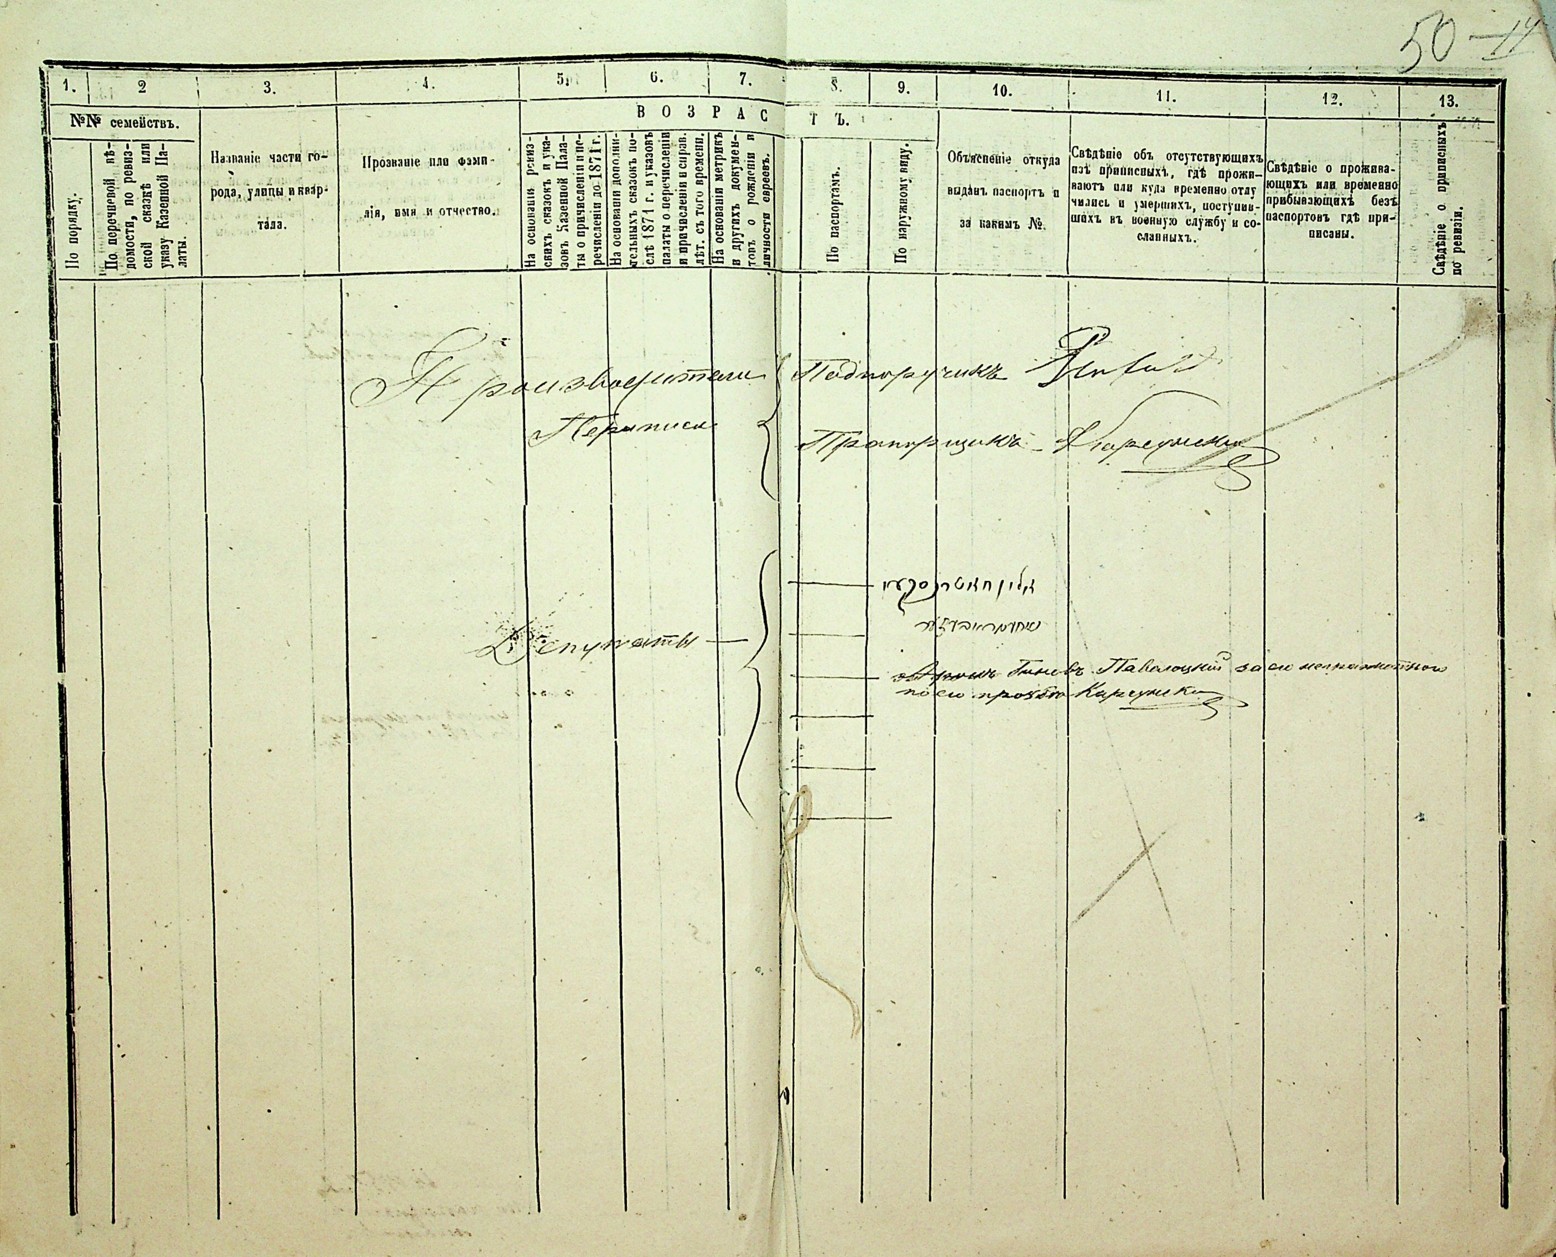 50
1. 2 3. 4. 5. 6. 7. 8. 9. 10. 11. 12. 13.
№№ семействъ.
По порядку.
По перечневой вѣ-
домости, по ревиз-
ской сказкѣ или
указу Казенной Па-
латы.
Названіе части го-
рода, улицы и квар-
тала.
Прозваніе или фами-
лія, имя и отчество.
ВОЗРАСТЪ.
На основаніи ревиз-
скихъ сказокъ и ука-
зовъ Казенной Пала-
ты о причисленіи и пе-
речисленіи до 1871 г.
На основаніи дополни-
тельныхъ сказокъ по-
слѣ 1871 г. и указовъ
палаты о перечисленіи
и причисленіи и справ.
лѣт. съ того времени.
На основаніи метрикъ
и другихъ докумен-
товъ о рожденіи и
личности евреевъ.
По паспортамъ.
По наружному виду.
Объясненіе откуда
выданъ паспортъ и
за какимъ №.
Свѣдѣніе объ отсутствующихъ
изъ приписныхъ, гдѣ прожи-
ваютъ или куда временно отлу
чились и умершихъ, поступив-
шихъ въ военную службу и со-
сланныхъ.
Свѣдѣніе о прожива-
ющихъ или временно
прибывающихъ безъ
паспортовъ гдѣ при-
писаны.
Свѣдѣніе о приписныхъ
по ревизіи.
Производители Подпоручикъ
Переписи Прапорщикъ
Депутаты
Павлоцкій за него неграмотного
по его прозьбе